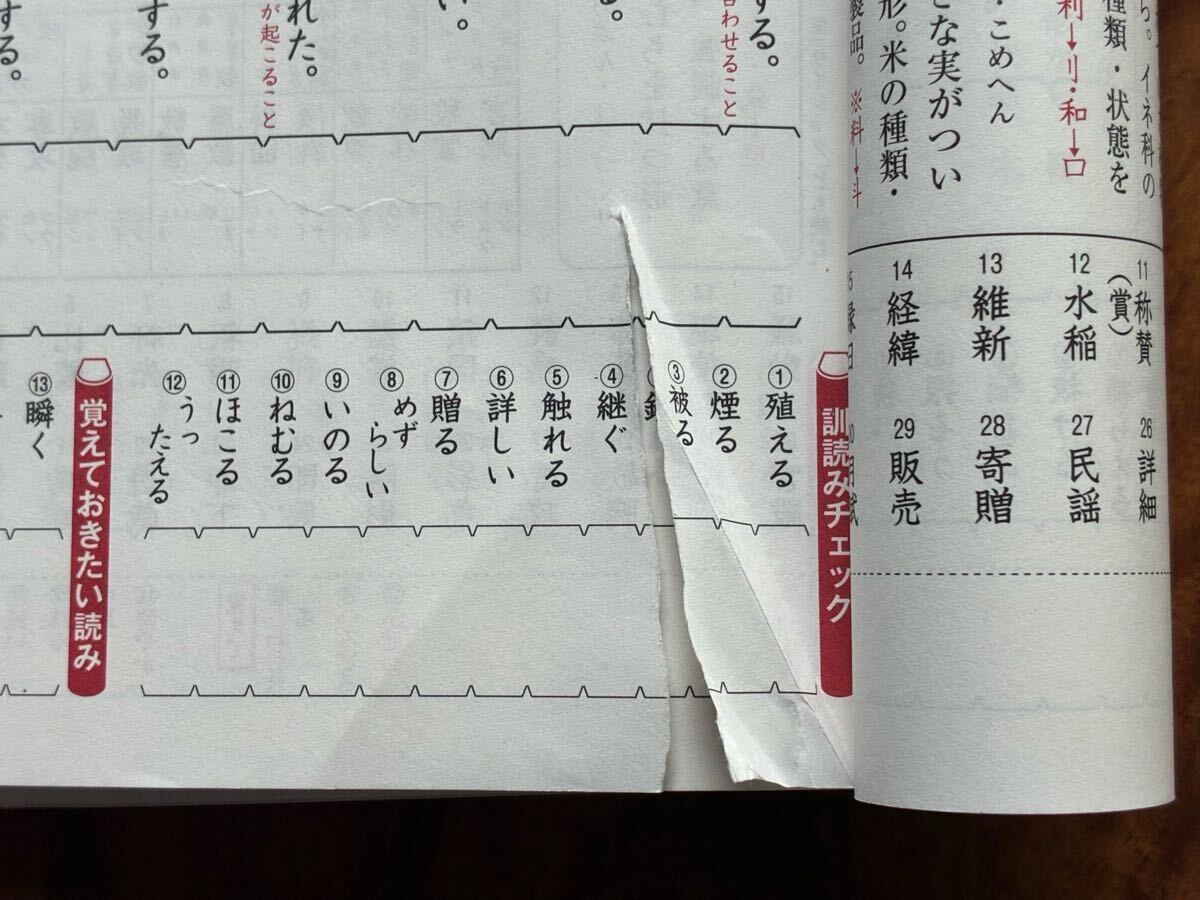 ら。イネ科の
種類・状態を
利→刂・和→口
・こめへん
な実がつい
形。米の種類・
製品。
※料→斗
11 称賛
(賞)
12 水稲
13 維新
14 経緯
26 詳細
27 民謡
28 寄贈
29 販売
する。
合わせること
る。
い。
れた。
が起こること
する。
する。
訓読みチェック
① 殖える
② 煙る
③ 被る
④ 継ぐ
⑤ 触れる
⑥ 詳しい
⑦ 贈る
⑧ めずらしい
⑨ いのる
⑩ ねむる
⑪ ほこる
⑫ うったえる
覚えておきたい読み
⑬ 瞬く